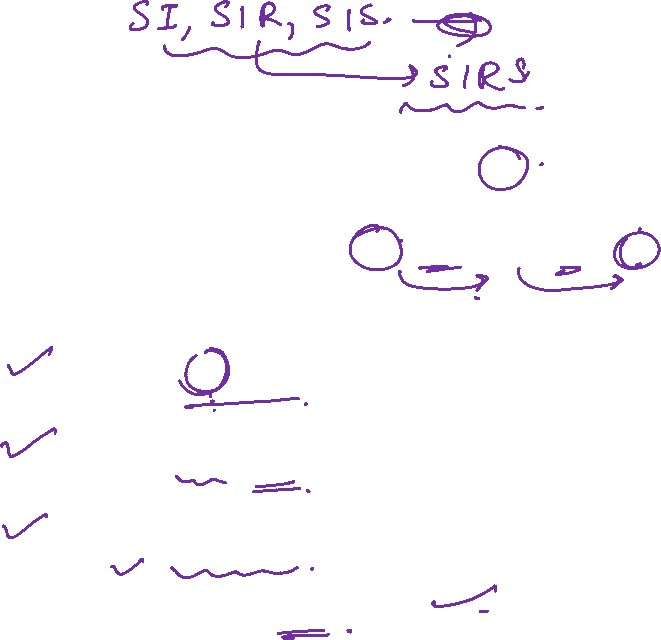 SI, SIR, SIS.
SIRS